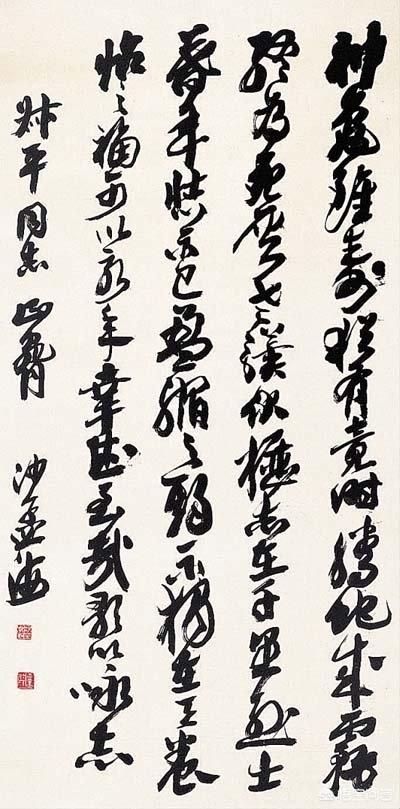 神龜雖壽猶有竟時騰蛇成霧
終為土灰老驥伏櫪志在千里烈士
暮年壯心不已盈縮之期不獨在天養
怡之福可以永年幸甚至哉歌以咏志
平同志 正
沙孟海